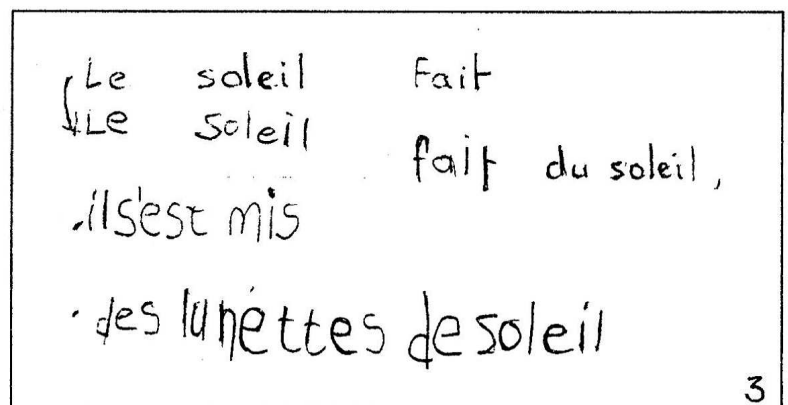 Le soleil Fait
Le soleil fait du soleil,
.il s'est mis
. des lunéttes de soleil
3